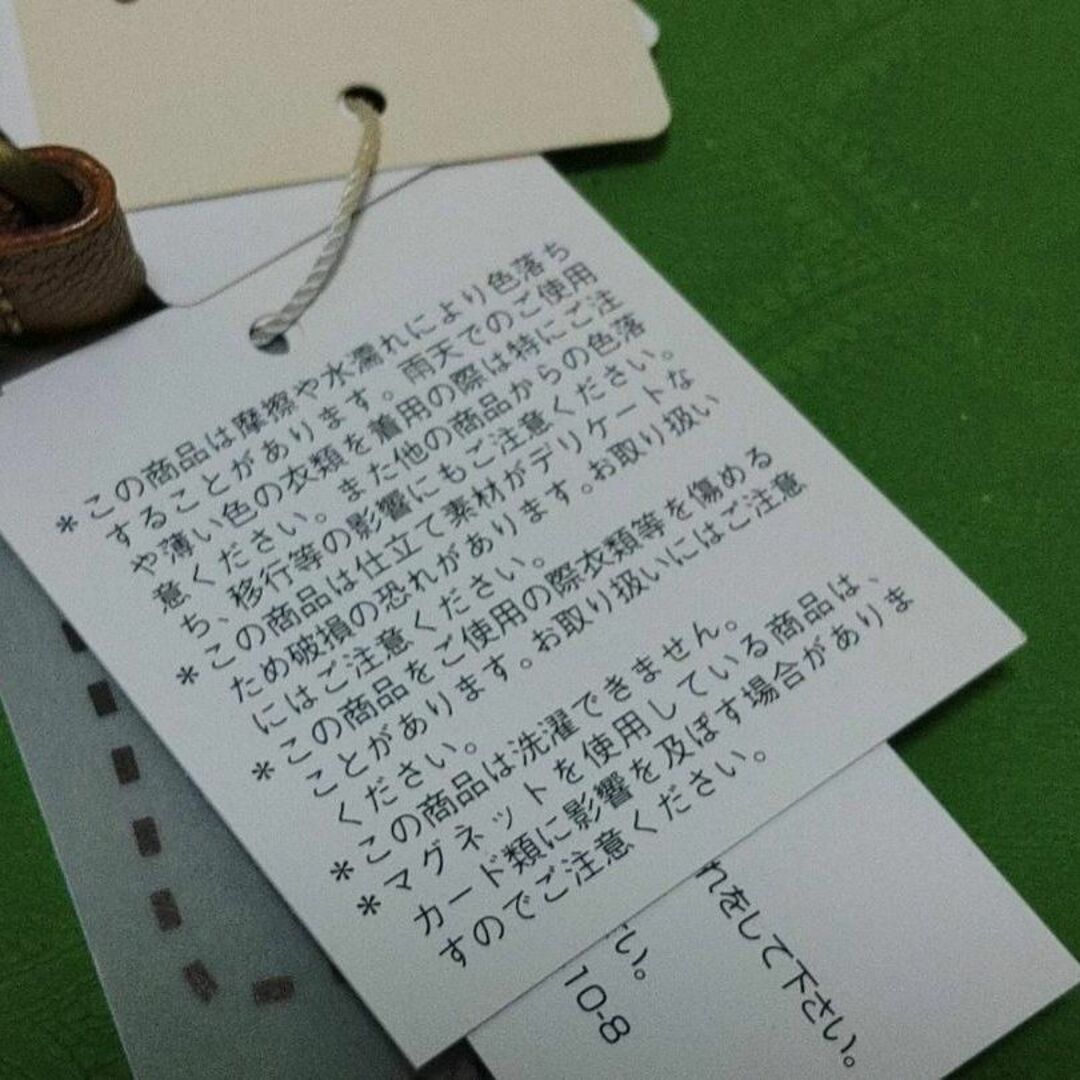 *この商品は摩擦や水濡れにより色落ち
することがあります。雨天でのご使用
や薄い色の衣類を着用の際は特にご注
意ください。また他の商品からの色落
ち、移行等の影響にもご注意ください。
*この商品は仕立て素材がデリケートな
ため破損の恐れがあります。お取り扱い
にはご注意ください。
*この商品をご使用の際衣類等を傷める
ことがあります。お取り扱いにはご注意
ください。
*この商品は洗濯できません。
*マグネットを使用している商品は、
カード類に影響を及ぼす場合がありま
すのでご注意ください。
れをして下さい。
い。
10-8